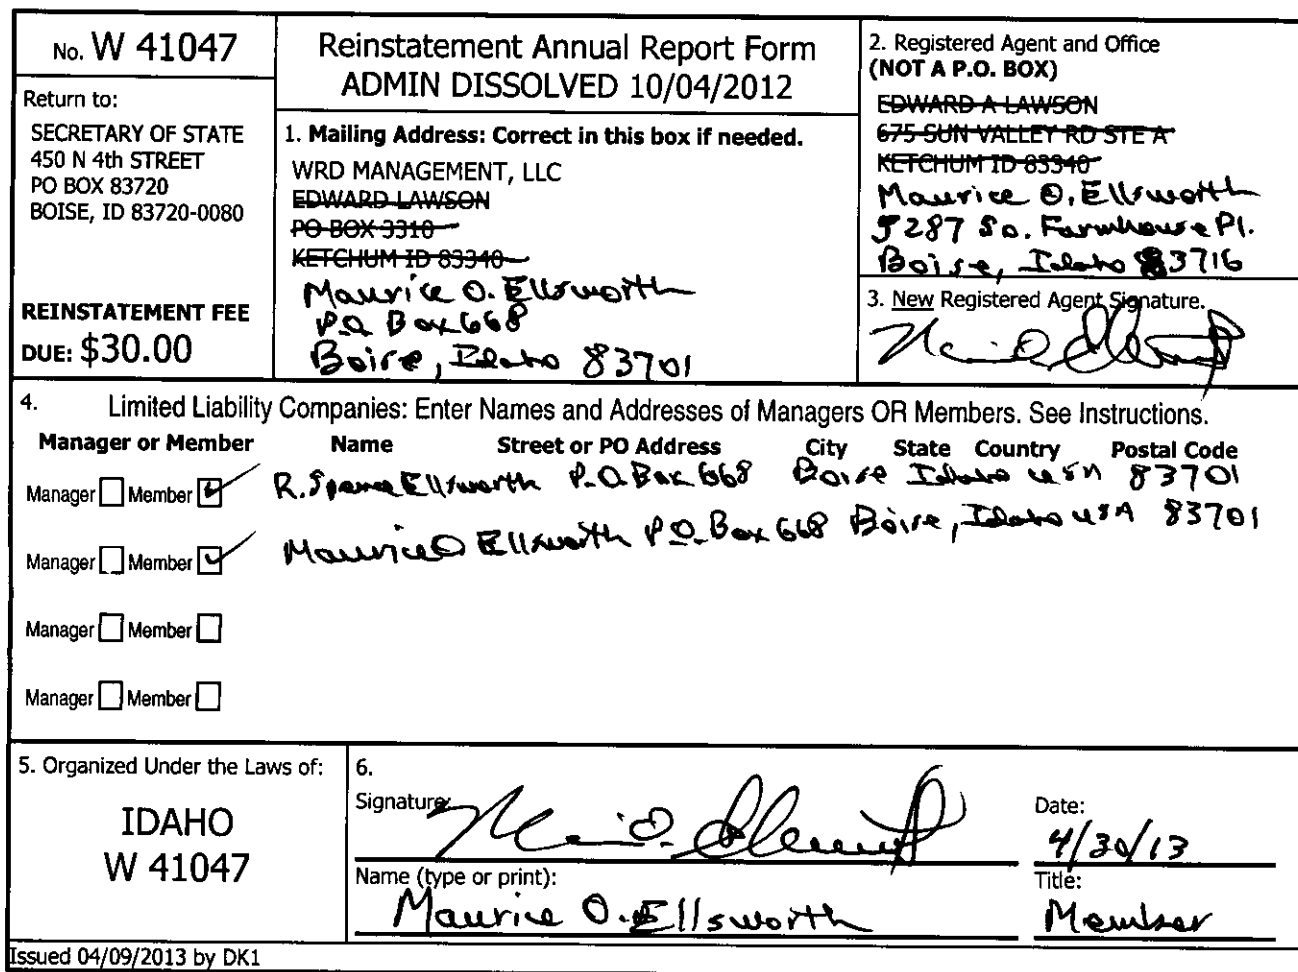 No. W 41047
Return to:
SECRETARY OF STATE
450 N 4th STREET
PO BOX 83720
BOISE, ID 83720-0080
REINSTATEMENT FEE
DUE: $30.00
Reinstatement Annual Report Form
ADMIN DISSOLVED 10/04/2012
1. Mailing Address: Correct in this box if needed.
WRD MANAGEMENT, LLC
EDWARD LAWSON
PO BOX 3310
KETCHUM ID 83340
Maurice O. Ellsworth
P.O. Box 668
Boise, Idaho 83701
2. Registered Agent and Office
(NOT A P.O. BOX)
EDWARD A LAWSON
675 SUN VALLEY RD STE A
KETCHUM ID 83340
Maurice O. Ellsworth
5287 So. Farmhouse Pl.
Boise, Idaho 83716
3. New Registered Agent Signature.
4. Limited Liability Companies: Enter Names and Addresses of Managers OR Members. See Instructions.
Manager or Member Name Street or PO Address City State Country Postal Code
Manager Member R. Spence Ellsworth P.O. Box 668 Boise Idaho USA 83701
Manager Member Maurice O Ellsworth P.O. Box 668 Boise, Idaho USA 83701
Manager Member
Manager Member
5. Organized Under the Laws of:
IDAHO
W 41047
6.
Signature:
Date:
4/30/13
Name (type or print):
Maurice O. Ellsworth
Title:
Member
Issued 04/09/2013 by DK1